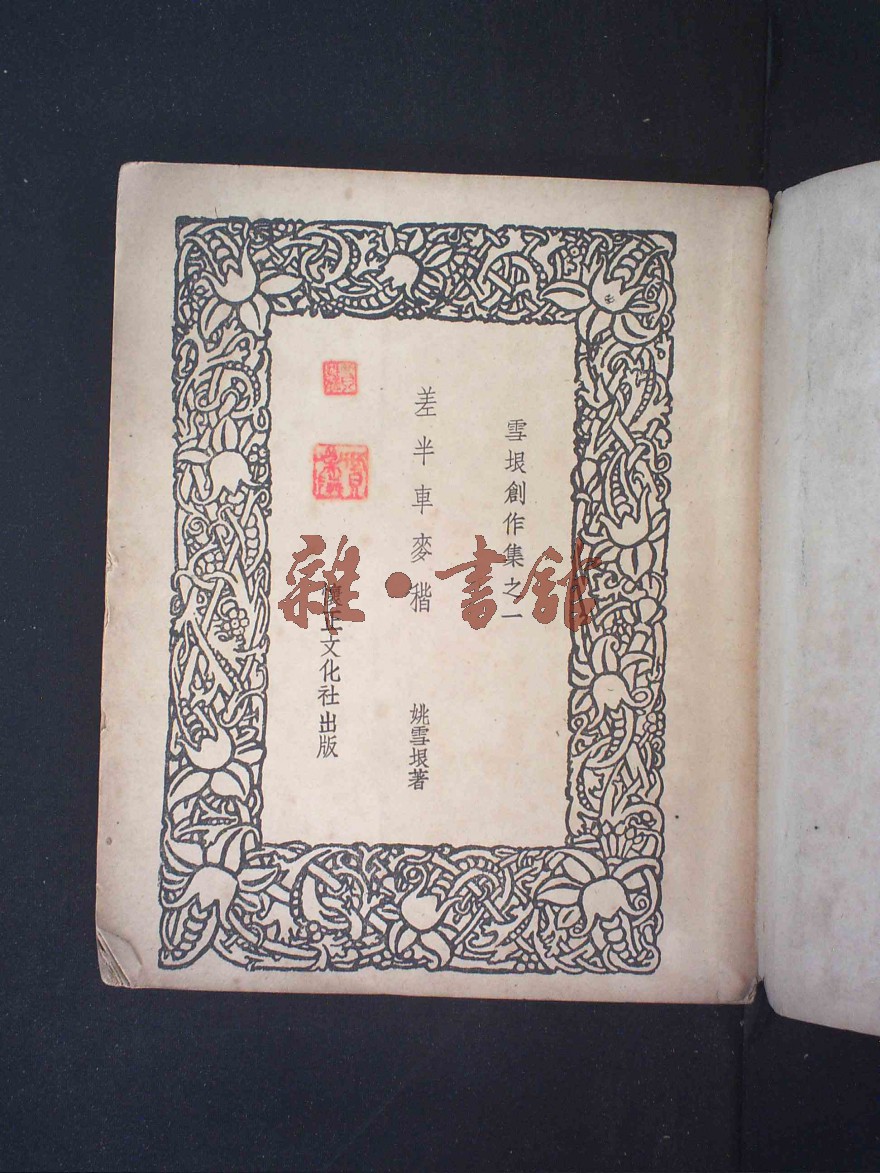 雪垠創作集之一
差半車麥稭
姚雪垠著
懷正文化社出版
雜·書館